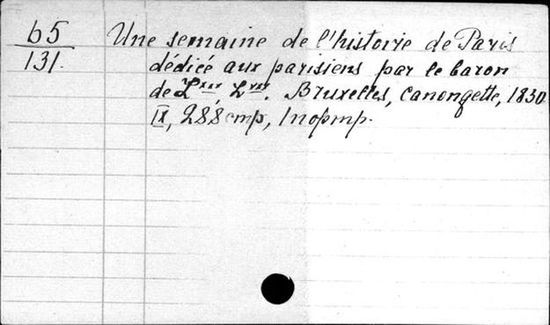 65
131.
Une semaine de l'histoire de Paris
dédicé aux parisiens par le baron
de L*** L***. Bruxelles, Canongette, 1830
IX, 288 cmp, 1 nopmp.